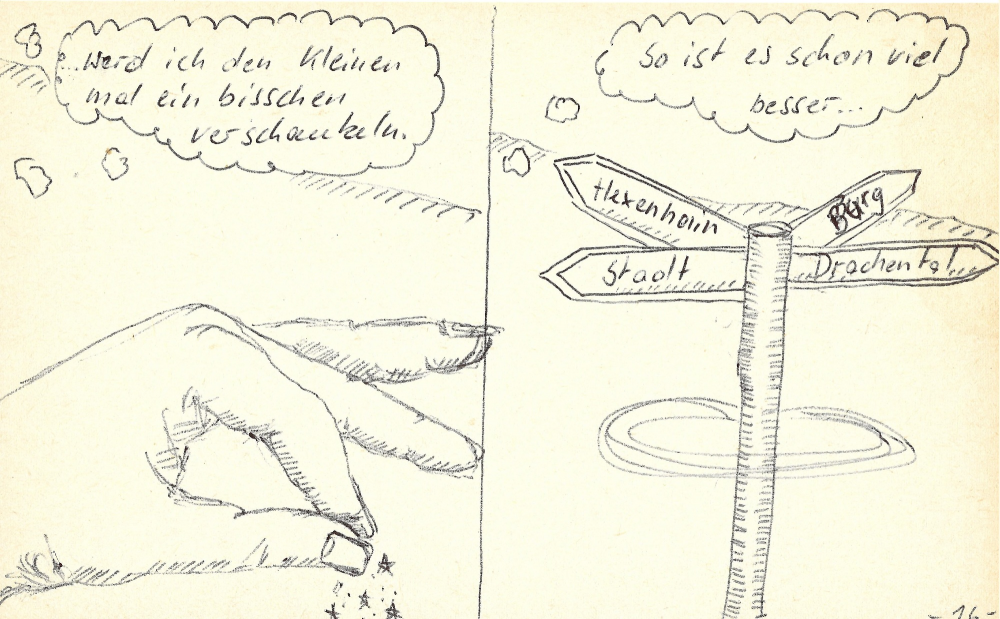 ...werd ich den Kleinen
mal ein bisschen
verschaukeln.
So ist es schon viel
besser...
Hexenhain
Burg
Stadt
Drachental
-16-